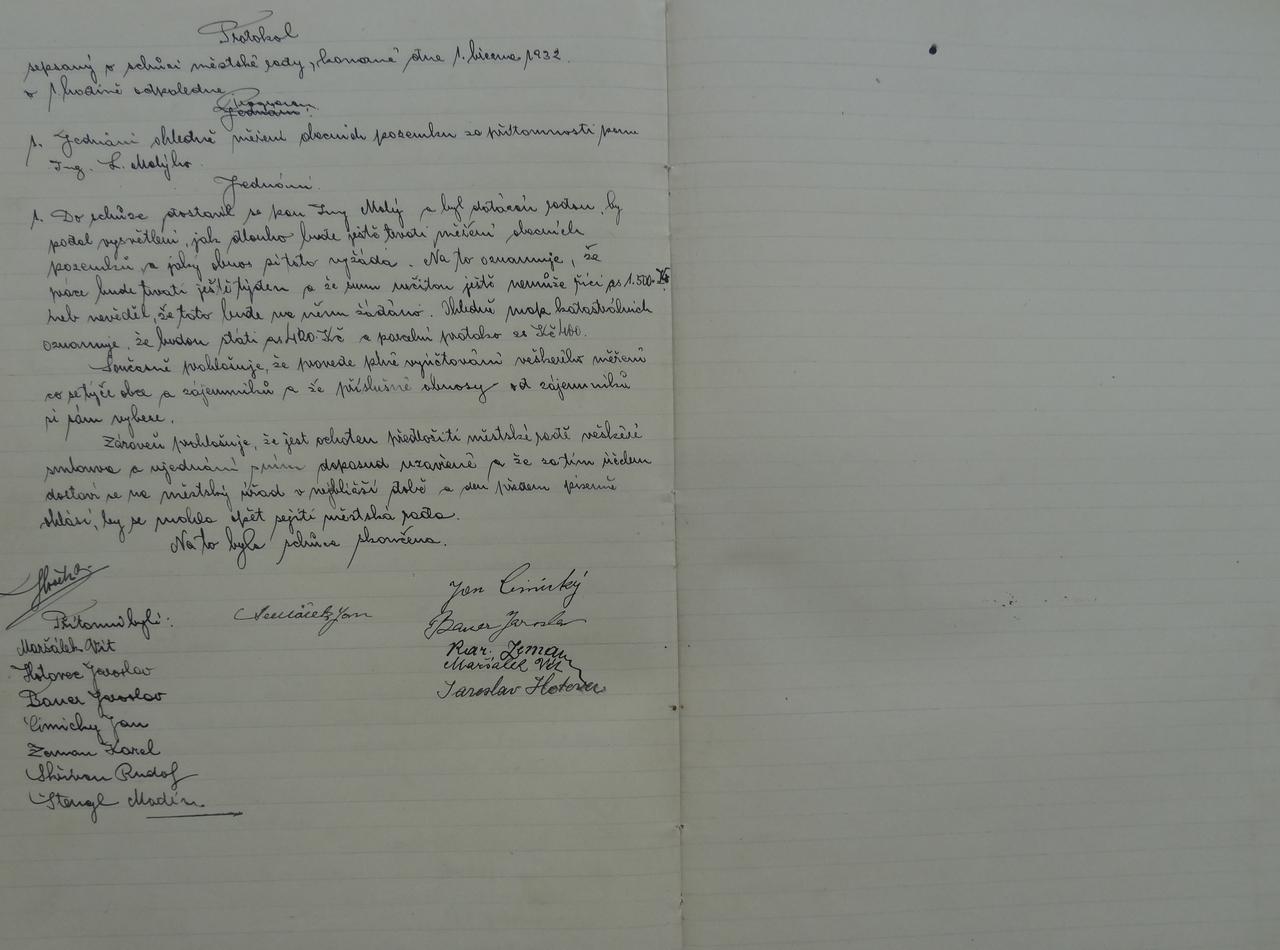 Protokol
sepsaný o schůzi městské rady, konané dne 1. března 1932.
o 1 hodině odpoledne
Program
Jednání:
1. Jednání ohledně měření obecních pozemků za přítomnosti pana
Ing. L. Malýho.
Jednání.
1. Do schůze dostavil se pan Ing Malý a byl dotázán radou, by
podal vysvětlení, jak dlouho bude ještě trvati měření obecních
pozemků, a jaký obnos si toto vyžádá. Na to oznamuje, že
práce bude trvati ještě týden a že sumu určitou ještě nemůže říci as 1.500 Kč
neb nevěděl, že toto bude na něm žádáno. Ohledně map katastrálních
oznamuje, že budou státi as 400 Kč a parcelní protoko za Kč 400.
Současně prohlašuje, že provede plné vyúčtování veškerého měření
co se týče obce a zájemníků a že příslušné obnosy od zájemníků
si sám vybere.
Zároveň prohlašuje, že jest ochoten předložiti městské radě veškeré
smlouva a ujednání s ním doposud uzavřené a že za tím účelem
dostaví se na městský úřad v nejbližší době a den předem písemně
ohlásí, by se mohla opět sejíti městská rada.
Na to byla schůze skončena.
Jan Cimický
Přítomni byli:
Bauer Jaroslav
Maršálek Vít
Kar. Zeman
Hotovec Jaroslav
Maršálek Vít
Bauer Jaroslav
Jaroslav Hotovec
Cimický Jan
Zeman Karel
Rudolf
Štengl